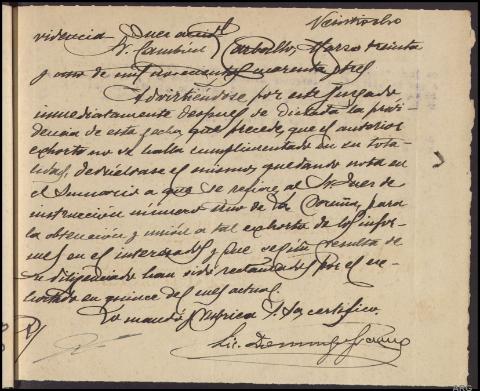 Veintiocho
videncia Juez acctl
Sr. Cambón Carballo, Marzo treinta
y uno de mil novecientos cuarenta y tres
Advirtiéndose por este Juzgado
inmediatamente después de dictada la provi
dencia de esta fecha que precede, que el anterior
exhorto no se halla cumplimentado en su tota-
lidad, devuélvase el mismo, quedando nota en
el sumario a que se refiere, al Sr. Juez de
instrucción número uno de La Coruña, para
la obtención y unión a tal exhorto de los infor-
mes en el interesados y que según resulta de
su diligenciado han sido reclamados por el ex-
hortado en quince del mes actual.
Lo mandó y rubrica S.Sª, certifico.
Lic. Domingo
ARG